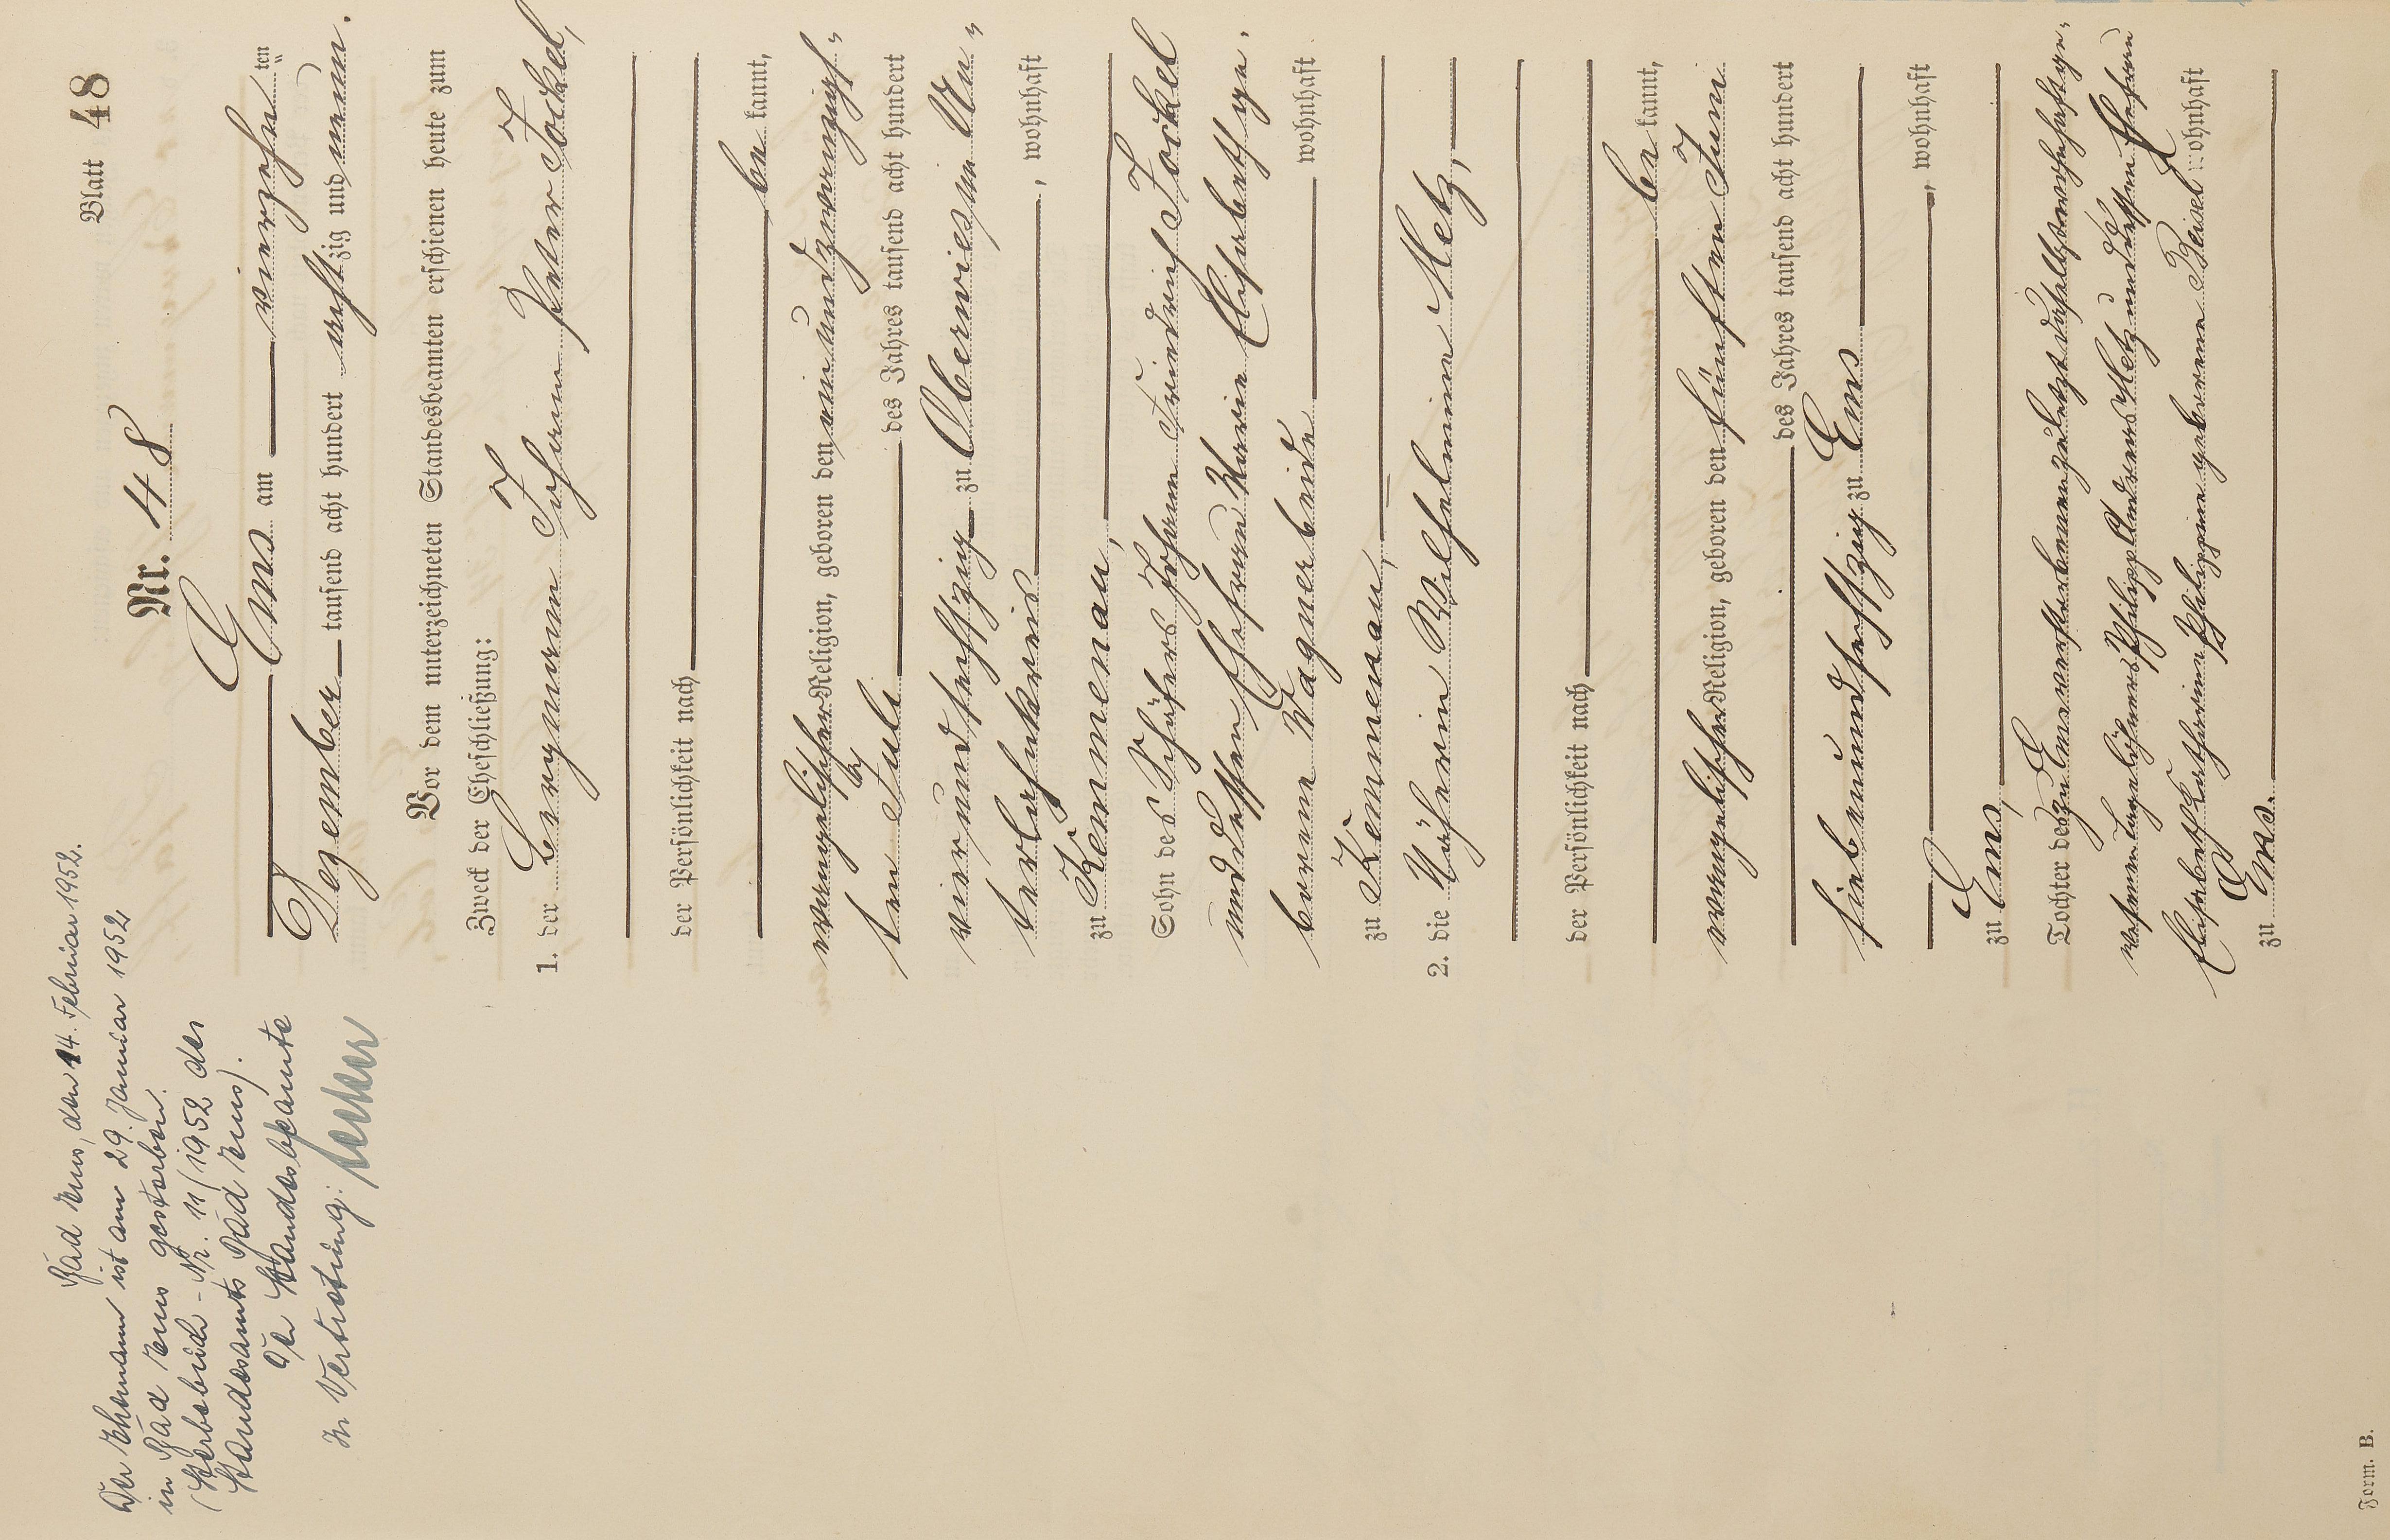 Blatt 48
Nr. 48
Ems am vierzehn ten
Dezember tausend acht hundert acht zig und neun.
Vor dem unterzeichneten Standesbeamten erschienen heute zum
Zweck der Eheschließung:
1. der Bergmann Johann Peter Jockel,
der Persönlichkeit nach
be kannt,
evangelischer Religion, geboren den einundzwanzigs-
ten Juli des Jahres tausend acht hundert
vierundsechszig zu Oberwies im Un-
terlahnkreis, wohnhaft
zu Kemmenau,
Sohn des Schäfers Johann Friedrich Jockel
und dessen Ehefrau Marie Elisabeth ge-
borene Wagner beide wohnhaft
zu Kemmenau,
2. die Näherin Wilhelmine Metz,
der Persönlichkeit nach
be kannt,
evangelischer Religion, geboren den fünften Juni
des Jahres tausend acht hundert
siebenundsechszig zu Ems
, wohnhaft
zu Ems,
Tochter des zu Ems verstorbenen zuletzt daselbst wohnhaft ge-
wesenen Tagelöhners Philipp Andreas Metz und dessen Ehefrau
Elisabeth Katharine Philippine geborene Beisel wohnhaft
zu Ems.
Bad Ems, den 14. Februar 1952.
Der Ehemann ist am 29. Januar 1952
in Bad Ems gestorben.
(Sterbebuch-Nr. 11/1952 des
Standesamts Bad Ems).
Der Standesbeamte
In Vertretung:
Form. B.